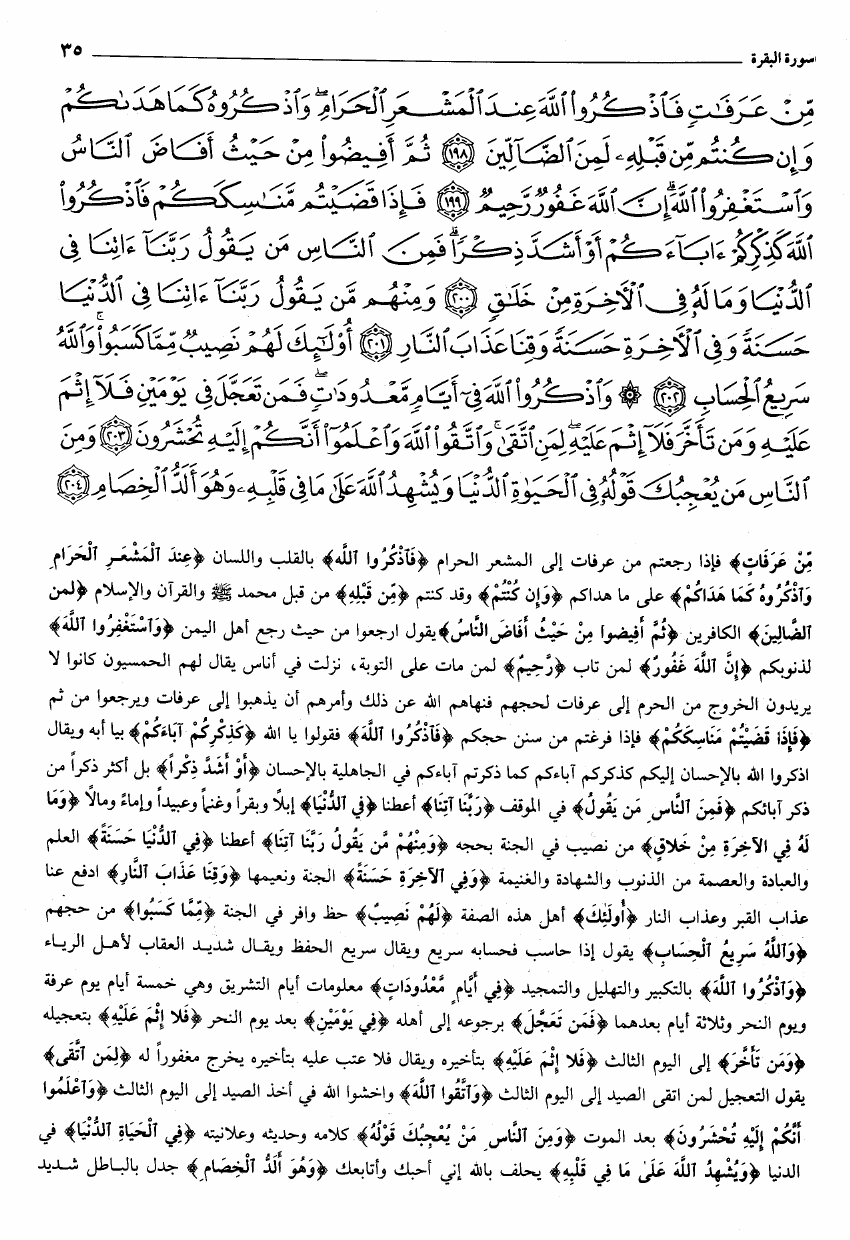 سورة البقرة ٣٥
مِّنْ عَرَفَٰتٍ فَٱذْكُرُوا۟ ٱللَّهَ عِندَ ٱلْمَشْعَرِ ٱلْحَرَامِ ۖ وَٱذْكُرُوهُ كَمَا هَدَىٰكُمْ
وَإِن كُنتُم مِّن قَبْلِهِۦ لَمِنَ ٱلضَّآلِّينَ ١٩٨ ثُمَّ أَفِيضُوا۟ مِنْ حَيْثُ أَفَاضَ ٱلنَّاسُ
وَٱسْتَغْفِرُوا۟ ٱللَّهَ ۚ إِنَّ ٱللَّهَ غَفُورٌ رَّحِيمٌ ١٩٩ فَإِذَا قَضَيْتُم مَّنَٰسِكَكُمْ فَٱذْكُرُوا۟
ٱللَّهَ كَذِكْرِكُمْ ءَابَآءَكُمْ أَوْ أَشَدَّ ذِكْرًا ۗ فَمِنَ ٱلنَّاسِ مَن يَقُولُ رَبَّنَآ ءَاتِنَا فِى
ٱلدُّنْيَا وَمَا لَهُۥ فِى ٱلْءَاخِرَةِ مِنْ خَلَٰقٍ ٢٠٠ وَمِنْهُم مَّن يَقُولُ رَبَّنَآ ءَاتِنَا فِى ٱلدُّنْيَا
حَسَنَةً وَفِى ٱلْءَاخِرَةِ حَسَنَةً وَقِنَا عَذَابَ ٱلنَّارِ ٢٠١ أُو۟لَٰٓئِكَ لَهُمْ نَصِيبٌ مِّمَّا كَسَبُوا۟ ۚ وَٱللَّهُ
سَرِيعُ ٱلْحِسَابِ ٢٠٢ ۞ وَٱذْكُرُوا۟ ٱللَّهَ فِىٓ أَيَّامٍ مَّعْدُودَٰتٍ ۚ فَمَن تَعَجَّلَ فِى يَوْمَيْنِ فَلَآ إِثْمَ
عَلَيْهِ وَمَن تَأَخَّرَ فَلَآ إِثْمَ عَلَيْهِ ۚ لِمَنِ ٱتَّقَىٰ ۗ وَٱتَّقُوا۟ ٱللَّهَ وَٱعْلَمُوٓا۟ أَنَّكُمْ إِلَيْهِ تُحْشَرُونَ ٢٠٣ وَمِنَ
ٱلنَّاسِ مَن يُعْجِبُكَ قَوْلُهُۥ فِى ٱلْحَيَوٰةِ ٱلدُّنْيَا وَيُشْهِدُ ٱللَّهَ عَلَىٰ مَا فِى قَلْبِهِۦ وَهُوَ أَلَدُّ ٱلْخِصَامِ ٢٠٤
مِّنْ عَرَفَاتٍ﴾ فإذا رجعتم من عرفات إلى المشعر الحرام ﴿فَٱذْكُرُوا ٱللَّه﴾ بالقلب واللسان ﴿عِندَ ٱلْمَشْعَـرِ ٱلْحَرَامِ
وَٱذْكُرُوهُ كَمَا هَدَاكُمْ﴾ على ما هداكم ﴿وَإِن كُنْتُمْ﴾ وقد كنتم ﴿مِّن قَبْلِهِ﴾ من قبل محمد ﷺ والقرآن والإسلام ﴿لمن
ٱلضَّالِينَ﴾ الكافرين ﴿ثُمَّ أَفِيضُوا مِنْ حَيْثُ أَفَاضَ النَّاسُ﴾يقول ارجعوا من حيث رجع أهل اليمن ﴿وَٱسْتَغْفِرُوا ٱللَّهَ﴾
لذنوبكم ﴿إِنَّ ٱللَّهَ غَفُورٌ﴾ لمن تاب ﴿رَّحِيمٌ﴾ لمن مات على التوبة، نزلت في أناس يقال لهم الحمسيون كانوا لا
يريدون الخروج من الحرم إلى عرفات لحجهم فنهاهم الله عن ذلك وأمرهم أن يذهبوا إلى عرفات ويرجعوا من ثم
﴿فَإِذَا قَضَيْتُمْ مَنَاسِكَكُمْ﴾ فإذا فرغتم من سنن حجكم ﴿فَٱذْكُرُوا ٱللَّهَ﴾ فقولوا يا الله ﴿كَذِكْرِكُمْ آبَاءَكُمْ﴾ بيا أبه ويقال
اذكروا الله بالإحسان إليكم كذكركم آباءكم كما ذكرتم آباءكم في الجاهلية بالإحسان ﴿أَوْ أَشَدَّ ذِكْراً﴾ بل أكثر ذكراً من
ذكر آبائكم ﴿فَمِنَ ٱلنَّاسِ مَن يَقُولُ﴾ في الموقف ﴿رَبَّنَا آتِنَا﴾ أعطنا ﴿في ٱلدُّنْيَا﴾ إبلاً وبقراً وغنماً وعبيداً وإماءً ومالاً ﴿وَمَا
لَهُ فِي الآخِرَةِ مِنْ خَلاقٍ﴾ من نصيب في الجنة بحجه ﴿وَمِنْهُمْ مَّن يَقُولُ رَبَّنَا آتِنَا﴾ أعطنا ﴿فِي ٱلدُّنْيَا حَسَنَةً﴾ العلم
والعبادة والعصمة من الذنوب والشهادة والغنيمة ﴿وَفِي ٱلآخِرَةِ حَسَنَةً﴾ الجنة ونعيمها ﴿وَقِنَا عَذَابَ ٱلنَّارِ﴾ ادفع عنا
عذاب القبر وعذاب النار ﴿أُولَئِكَ﴾ أهل هذه الصفة ﴿لَهُمْ نَصِيبٌ﴾ حظ وافر في الجنة ﴿مِّمَّا كَسَبُوا﴾ من حجهم
﴿وَٱللَّهُ سَرِيعُ ٱلْحِسَابِ﴾ يقول إذا حاسب فحسابه سريع ويقال سريع الحفظ ويقـال شديـد العقاب لأهـل الريـاء
﴿وَٱذْكُرُوا ٱللَّهَ﴾ بالتكبير والتهليل والتمجيد ﴿فِي أَيَّامٍ مَّعْدُودَاتٍ﴾ معلومات أيام التشريق وهي خمسة أيام يوم عرفة
ويوم النحر وثلاثة أيام بعدهما ﴿فَمَن تَعَجَّلَ﴾ برجوعه إلى أهله ﴿فِي يَوْمَيْنِ﴾ بعد يوم النحر ﴿فَلا إِثْمَ عَلَيْهِ﴾ بتعجيله
﴿وَمَن تَأَخَّرَ﴾ إلى اليوم الثالث ﴿فَلا إِثْمَ عَلَيْهِ﴾ بتأخيره ويقال فلا عتب عليه بتأخيره يخرج مغفوراً له ﴿لِمَن ٱتَّقَى﴾
يقول التعجيل لمن اتقى الصيد إلى اليوم الثالث ﴿وَٱتَّقُوا ٱللَّهَ﴾ واخشوا الله في أخذ الصيد إلى اليوم الثالث ﴿وَٱعْلَمُوا
أَنَّكُمْ إِلَيْهِ تُحْشَرُونَ﴾ بعد الموت ﴿وَمِنَ ٱلنَّاسِ مَنْ يُعْجِبُكَ قَوْلُهُ﴾ كلامه وحديثه وعلانيته ﴿فِي ٱلْحَيَاةِ ٱلدُّنْيَا﴾ في
الدنيا ﴿وَيُشْهِدُ ٱللَّهَ عَلَىٰ مَا فِي قَلْبِهِ﴾ يحلف بالله إني أحبك وأتابعك ﴿وَهُوَ أَلَدُّ ٱلْخِصَامِ﴾ جدل بالبـاطل شـديد